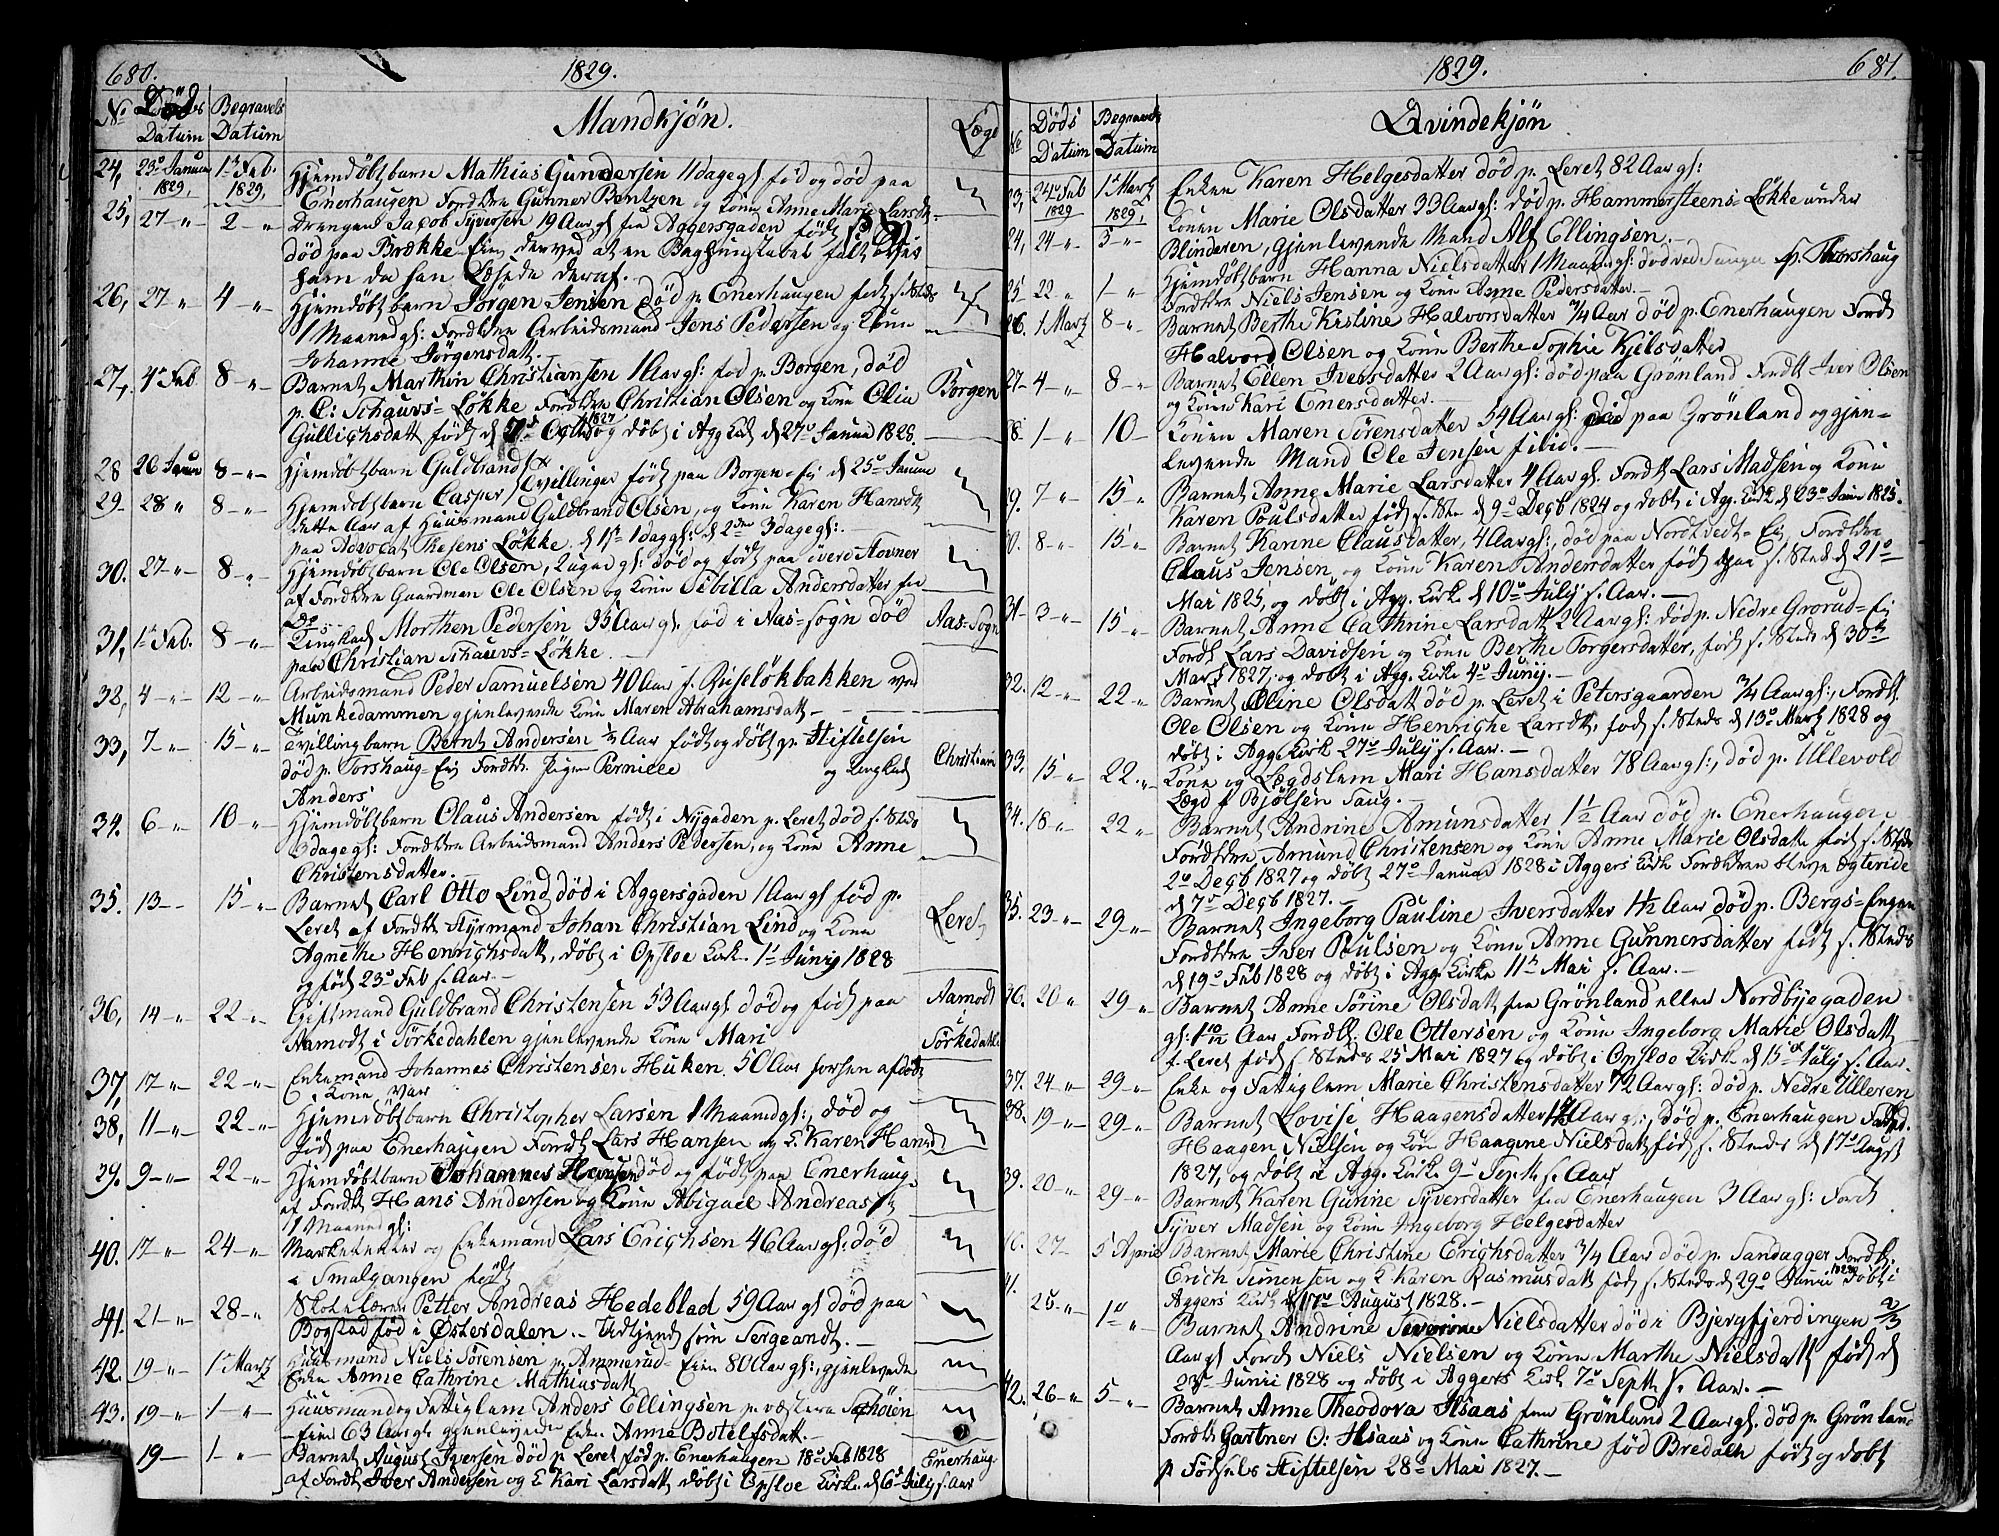 680.
1829.
No Døds Datum
Begravels Datum
Mandkjøn.
Lægd
24, 23de Januar 1829, 1te Feb. 1829, Hjemdøbt barn Mathias Gundersen 11 dage gl. fød og død paa
Enerhaugen Fordldre Gunner Bentzen og Kone Anne Marie Larsdtr
25, 27 -"- 2 -"- Drengen Jacob Syversen 19 Aar gl fra Aggersgaden født
død paa Brække-Eie, derved at en
ham da han Læsede deraf.
26, 27 " 4 -"- Hjemdøbt barn Jørgen Jensen død p. Enerhaugen født s. Steds
1 Maaned gl: Fordldre Arbeidsmand Jens Pedersen og Kone
Johanne Jørgensdatt.
27, 4de Feb. 8 -"- Barnet Marthin Christiansen 1 Aar gl: fød p. Borgen, død Borgen
p. C: Schauvs-Løkke Fordldre Christian Olsen og Kone Olia
Gullichsdatt født d 1827 og døbt i Agg Kirk d 27de Januar 1828.
28 26 Januar 8 -"- Hjemdøbt barn Guldbrand } Tvillinger født paa Borgen-Eie d 25de Januar
29- 28 " 8 -"- Hjemdøbt barn Casper
dette Aar af Huusmand Guldbrand Olsen, og Kone Karen Hansdtr
paa Advocat Thesens Løkke. d 1ste 1 dag gl: d 2den 3 dage gl:
30. 27 -"- 8 -"- Hjemdøbt barn Ole Olsen, 2 uger gl: død og født paa øverd Stovner
af Fordldre Gaardman Ole Olsen og Kone Sibilla Andersdatter fra
Do
31, 1te Feb. 8 -"- Morthen Pedersen 35 Aar gl fød i Aas-Sogn død Aas-Sogn
paa Christian Schauvs-Løkke.
32, 4 -"- 12 -"- Arbeidsmand Peder Samuelsen 40 Aar f. Ruseløkbakken ved
Munkedammen gjenlevende Kone Maren Abrahamsdatt
33, 7 -"- 15 -"- Tvillingbarn Bernt Andersen ½ Aar født og døbt p. Stiftelsen Christiania
død p. Torshaug-Eie Fordldr. Pigen Pernille og Ungkarl
Anders
34. 6 -"- 10 -"- Hjemdøbt barn Claus Andersen født i Nygaden p. Leret død s. Steds
3 dage gl: Fordldre Arbeidsmand Anders Pedersen, og Kone Anne
Christensdatter.
35. 13 - 15 -"- Barnet Carl Otto Lind død i Aggersgaden 1 Aar gl fød p. Leret
Leret af Fordldr Styrmand Johan Christian Lind og Kone
Agnethe Henrichsdatt, døbt i Opsloe Kirk 1te Junij 1828
og fød 23de Feb s. Aar.
36, 14 -"- 22 -"- Giftmand Guldbrand Christensen 53 Aar gl død og født paa Aamodt i Sørkedahlen
Aamodt i Sørkedahlen gjenlevende Kone Mari
37, 17 -"- 22 -"- Enkemand Johannes Christensen Huken. 50 Aar
38, 11 -"- 22 -"- Hjemdøbt barn Christopher Larsen 1 Maaned gl:, død og
født paa Enerhaugen Fordldr Lars Hansen og K. Karen Hansd
39. 9 -"- 22 -"- Hjemdøbt barn Johannes Hansen død og født paa Enerhaug.
af Fordldr Hans Andersen og Kone Abigael Andreas
1 Maaned gl:
40. 17 -"- 24 -"- Marketenter og Enkemand Lars Erichsen 46 Aar gl. død
i Smalgangen født
41. 21 -"- 28 -"- Skolelærer Petter Andreas Hedeblad 59 Aar gl død paa
Bogstad fød i Østerdalen.- Udtjendt som Sergeandt.-
42. 19 -"- 1te Martz Huusmand Niels Sørensen p. Ammerud-Eie 80 Aar gl:, gjenlevende
Enke Anne Cathrine Mathiusdatt
43. 19 -"- 1 -"- Huusmand og Fattiglem Anders Ellingsen p.
-Eie 63 Aar gl gjenlevende Enke Anne Botelfsdatt.-
19 - 1 -"- Barnet August Iversen død p. Leret fød p. Enerhaugen 18de Feb 1828 Enerhaug
af Fordldr Iver Andersen og K Kari Larsdatt døbt i Opsloe Kirke d 6te July s. Aar
681.
1829.
No
Døds Datum
Begravels Datum
Qvindekjøn
23, 24de Feb 1829 1te Martz 1829, Enken Karen Helgesdatter død p. Leret 82 Aar gl:
24, 24 -"- 5 -"- Konen Marie Olsdatter 33 Aar gl: død p. Hammersteens-Løkke under
Blinderen, gjenlevende Mand Alf Ellingsen.
25 22 " 1 -"- Hjemdøbt barn Hanna Nielsdatter 1 Maaned gl: død p. Thorshaug
Fordldre Niels Jensen og Kone Anne Pedersdatter.-
26. 1 Martz 8 -"- Barnet Berthe Kistine Halvorsdatter ¾ Aar død p. Enerhaugen Fordl
Halvord Olsen og Kone Berthe Sophie Kjelsdatter
27- 4 -"- 8 -"- Barnet Ellen Iversdatter 2 Aar gl: død paa Grønland Fordldr Iver Olsen
og Kone Kari Enersdatter.-
28. 1 -"- 10 - Konen Maren Sørensdatter 54 Aar gl: død paa Grønland og gjen-
levende Mand Ole Jensen
29. 7 -"- 15 -"- Barnet Anne Marie Larsdatter 4 Aar gl. Fordldr Lars Madsen og Kone
Karen Poulsdatter født s. Sted d 9de Decb 1824 og døbt i Agg. Kirk d 23de Janu 1825.
30. 8 -"- 15 -"- Barnet Kanne Clausdatter, 4 Aar gl:, død paa Nordtvedt-Eie, Fordldre
Claus Jensen, og Kone Karen Andersdatter født paa s. Sted d 21de
Mai 1825, og døbt i Agg. Kirke d 10de July s. Aar.-
31- 3 -"- 15 -"- Barnet Anne Cathrine Larsdatt 2 Aar gl: død p. Nedre Grorud-Eie
Fordl. Lars Davidsen og Kone Berthe Torgersdatter, født s. Steds d 30te
Martz 1827, og døbt i Agg. Kirke 4de Junij.-
32. 12 -"- 22 -"- Barnet Oline Olsdatt død p. Leret i Petersgaarden ¾ Aar gl:, Fordldr
Ole Olsen og Kone Henriche Larsdtr, fød s. Steds d 13de Martz 1828 og
døbt i Agg. Kirk 27de July s. Aar.-
33. 15 -"- 22 -"- Kone og Lægdslem Mari Hansdatter 78 Aar gl:, død p. Ullevold
Lægd f Bjølsen Saug.-
34. 18 -"- 22 -"- Barnet Andrine Amunsdatter 1½ Aar død p. Enerhaugen
Fordldre Amund Christensen og Kone Anne Marie Olsdatt født s. Steds
2de Decb 1827 og døbt 27de Januar 1828 i Aggers Kirk Fordldrene bleve egteviede
d 7de Decb 1827.-
35. 23 -"- 29 -"- Barnet Ingeborg Pauline Iversdatter 1½ Aar død p. Bergs-Engen
Fordldre Iver Poulsen og Kone Anne Gunnersdatter født s. Steds
d 19de Feb 1828 og døbt i Agg Kirke 11te Mai s. Aar.-
36. 20 -"- 29 -"- Barnet Anne Sørine Olsdatt fra Grønland eller Nordbyegaden
gl: 1 10/12 Aar Fordldr: Ole Ottersen og Kone Ingeborg Marie Olsdatt
f. Leret født s. Steds 25 Mai 1827 og døbt i Opsloe Kirk d 15de July s. Aar.
37. 24 -"- 29 -"- Enke og Fattiglem Marie Christensdatter 72 Aar gl: død p. Nedre Ulleren
38. 19 -"- 29 -"- Barnet Lovise Haagensdatter 1½ Aar gl:, død p. Enerhaugen
Haagen Nielsen og Kone Haagine Nielsdatt født s. Steds d 17de Augst
1827, og døbt i Agg. Kirke 9de Septb s. Aar
39. 20 -"- 29 -"- Barnet Karen Gunine Syversdatter fra Enerhaugen 3 Aar gl: Fordl
Syver Madsen og Kone Ingeborg Helgesdatter
40. 27 - 5 April Barnet Marie Christine Erichsdatter ¾ Aar død p. Sandagger Fordldr
Erich Simensen og K Karen Rasmusdatt født s. Steds d 29de Junii 1828 døbt i
Aggers Kirk d 17de August 1828.-
41. 25 -"- 1de " Barnet Andrine Severine Nielsdatter død i Bjergfjerdingen 2/3
Aar gl Fordl Niels Nielsen og Kone Marthe Nielsdatt født d
23de Juni 1828 og døbt i Aggers Kirk 7de Septb s. Aar.-
42. 26 -"- 5 -"- Barnet Anne Theodora Isaas fra Grønland 2 Aar gl. død p. Grønland
Fordldr Gartner O: Isaas og Kone Cathrine fød Bredahl født og døbt
p Fødsels Stiftelsen 28de Mai 1827.-